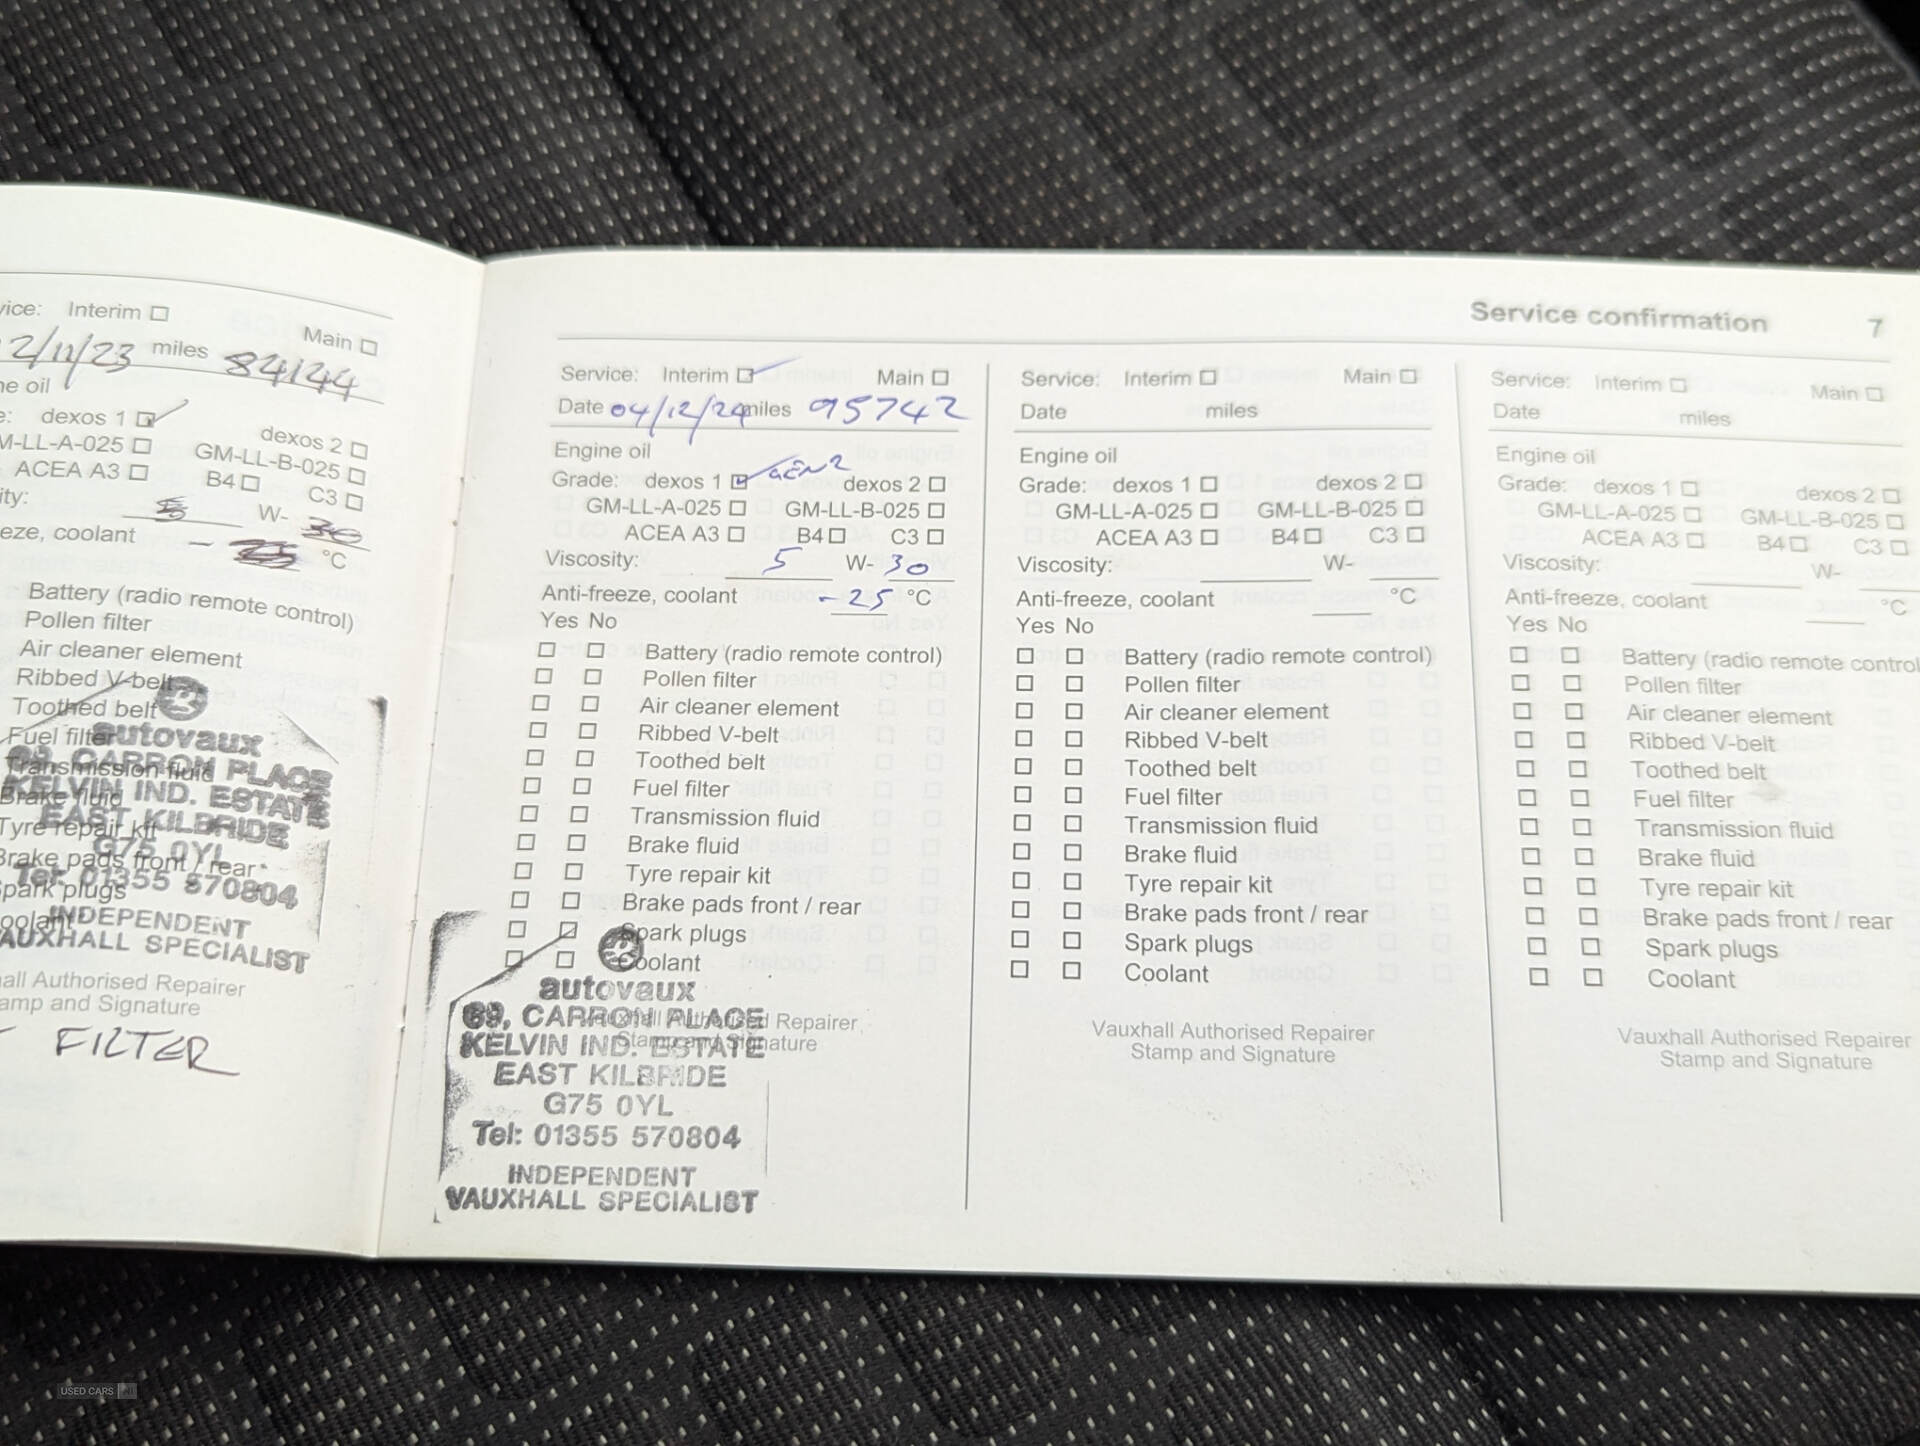 vice: Interim
Main
2/11/23 miles 84144
ne oil
e: dexos 1
dexos 2
M-LL-A-025
GM-LL-B-025
ACEA A3
B4 C3
ity: 5 W- 30
eze, coolant - 25 °C
Battery (radio remote control)
Pollen filter
Air cleaner element
Ribbed V-belt
Toothed belt
Fuel filter
Transmission fluid
Brake fluid
Tyre repair kit
Brake pads front / rear
Spark plugs
oolant
autovaux
89, CARRON PLACE
KELVIN IND. ESTATE
EAST KILBRIDE
G75 0YL
Tel: 01355 570804
INDEPENDENT
VAUXHALL SPECIALIST
hall Authorised Repairer
amp and Signature
FILTER
Service confirmation 7
Service: Interim Main
Date 04/12/24 miles 95742
Engine oil
Grade: dexos 1 GEN 2 dexos 2
GM-LL-A-025 GM-LL-B-025
ACEA A3 B4 C3
Viscosity: 5 W- 30
Anti-freeze, coolant -25 °C
Yes No
Battery (radio remote control)
Pollen filter
Air cleaner element
Ribbed V-belt
Toothed belt
Fuel filter
Transmission fluid
Brake fluid
Tyre repair kit
Brake pads front / rear
Spark plugs
Coolant
Vauxhall Authorised Repairer
Stamp and Signature
autovaux
89, CARRON PLACE
KELVIN IND. ESTATE
EAST KILBRIDE
G75 0YL
Tel: 01355 570804
INDEPENDENT
VAUXHALL SPECIALIST
Service: Interim Main
Date miles
Engine oil
Grade: dexos 1 dexos 2
GM-LL-A-025 GM-LL-B-025
ACEA A3 B4 C3
Viscosity: W-
Anti-freeze, coolant °C
Yes No
Battery (radio remote control)
Pollen filter
Air cleaner element
Ribbed V-belt
Toothed belt
Fuel filter
Transmission fluid
Brake fluid
Tyre repair kit
Brake pads front / rear
Spark plugs
Coolant
Vauxhall Authorised Repairer
Stamp and Signature
Service: Interim Main
Date miles
Engine oil
Grade: dexos 1 dexos 2
GM-LL-A-025 GM-LL-B-025
ACEA A3 B4 C3
Viscosity: W-
Anti-freeze, coolant °C
Yes No
Battery (radio remote control
Pollen filter
Air cleaner element
Ribbed V-belt
Toothed belt
Fuel filter
Transmission fluid
Brake fluid
Tyre repair kit
Brake pads front / rear
Spark plugs
Coolant
Vauxhall Authorised Repairer
Stamp and Signature
USED CARS NI